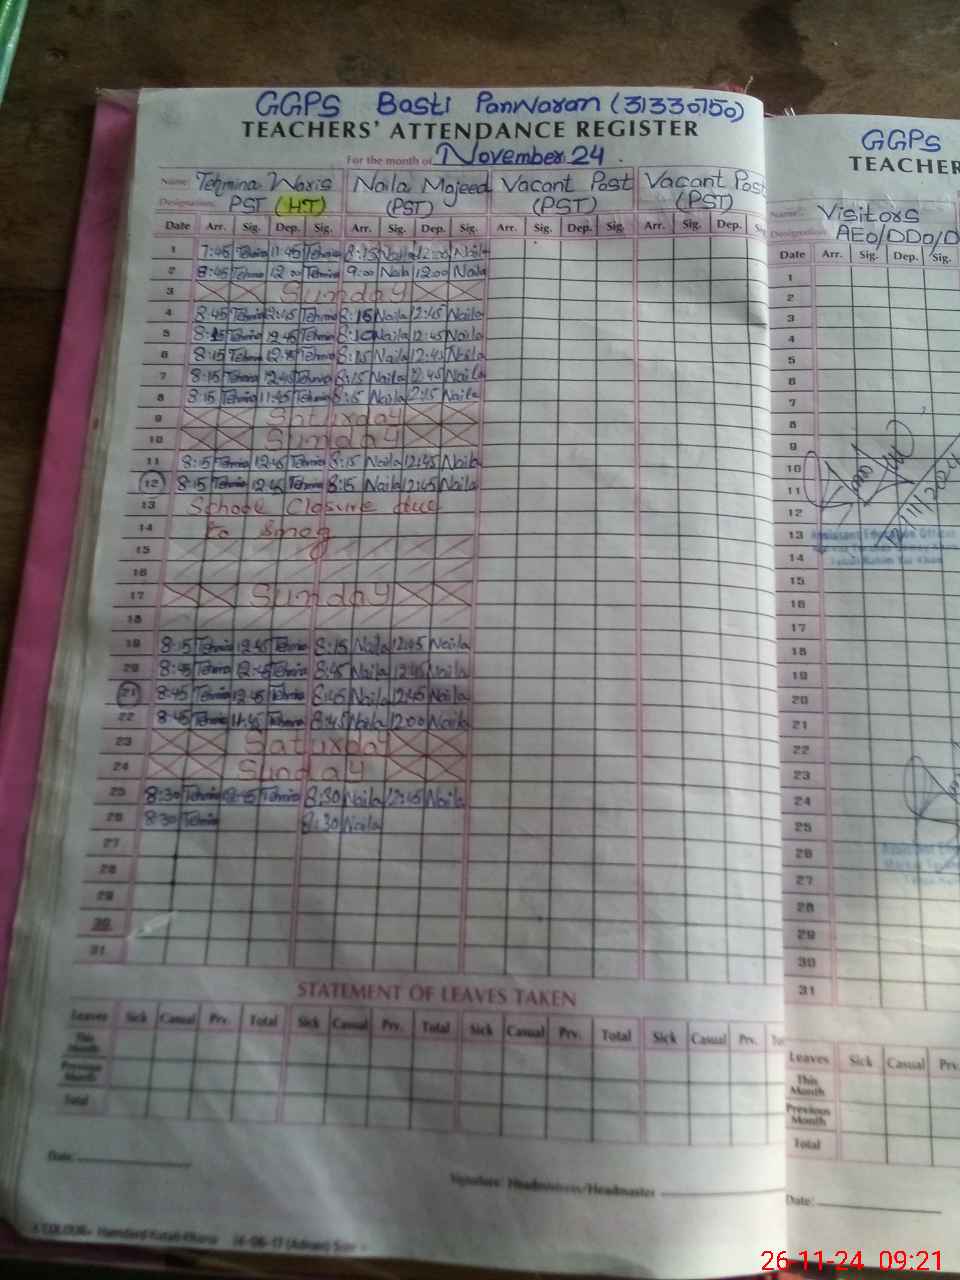 GGPS Basti Panwaran (31330150)
TEACHERS' ATTENDANCE REGISTER
For the month of November 24.
Name: Tehmina Waris Naila Majeed Vacant Post Vacant Post
Designation: PST (HT) (PST) (PST) (PST)
Date Arr. Sig. Dep. Sig. Arr. Sig. Dep. Sig. Arr. Sig. Dep. Sig. Arr. Sig. Dep. Sig.
1 7:45 Tehmina 11:45 Tehmina 8:15 Naila 12:00 Naila
2 8:45 Tehmina 12:00 Tehmina 9:00 Naila 12:00 Naila
3 Sunday
4 8:45 Tehmina 12:45 Tehmina 8:15 Naila 12:45 Naila
5 8:15 Tehmina 12:45 Tehmina 8:10 Naila 12:45 Naila
6 8:15 Tehmina 12:45 Tehmina 8:15 Naila 12:45 Naila
7 8:15 Tehmina 12:45 Tehmina 8:15 Naila 12:45 Naila
8 8:15 Tehmina 11:45 Tehmina 8:15 Naila 12:15 Naila
9 Saturday
10 Sunday
11 8:15 Tehmina 12:45 Tehmina 8:15 Naila 12:45 Naila
12 8:15 Tehmina 12:45 Tehmina 8:15 Naila 12:45 Naila
13 School Closure due
14 to Smog
15
16
17 Sunday
18
19 8:15 Tehmina 12:45 Tehmina 8:15 Naila 12:45 Naila
20 8:45 Tehmina 12:45 Tehmina 8:45 Naila 12:45 Naila
21 8:45 Tehmina 12:45 Tehmina 8:45 Naila 12:45 Naila
22 8:45 Tehmina 11:45 Tehmina 8:45 Naila 12:00 Naila
23 Saturday
24 Sunday
25 8:30 Tehmina 12:45 Tehmina 8:30 Naila 12:45 Naila
26 8:30 Tehmina 8:30 Naila
27
28
29
30
31
STATEMENT OF LEAVES TAKEN
Leaves Sick Casual Prv. Total Sick Casual Prv. Total Sick Casual Prv. Total Sick Casual Prv.
This Month
Previous Month
Total
Date:
Signature: Headmistress/Headmaster
GGPS
TEACHER
Name: Visitors
Designation: AEO/DDO/D
Date Arr. Sig. Dep. Sig.
1
2
3
4
5
6
7
8
9
10
11
12
13
14
15
16
17
18
19
20
21
22
23
24
25
26
27
28
29
30
31
Leaves Sick Casual Prv.
This Month
Previous Month
Total
Date:
26-11-24 09:21